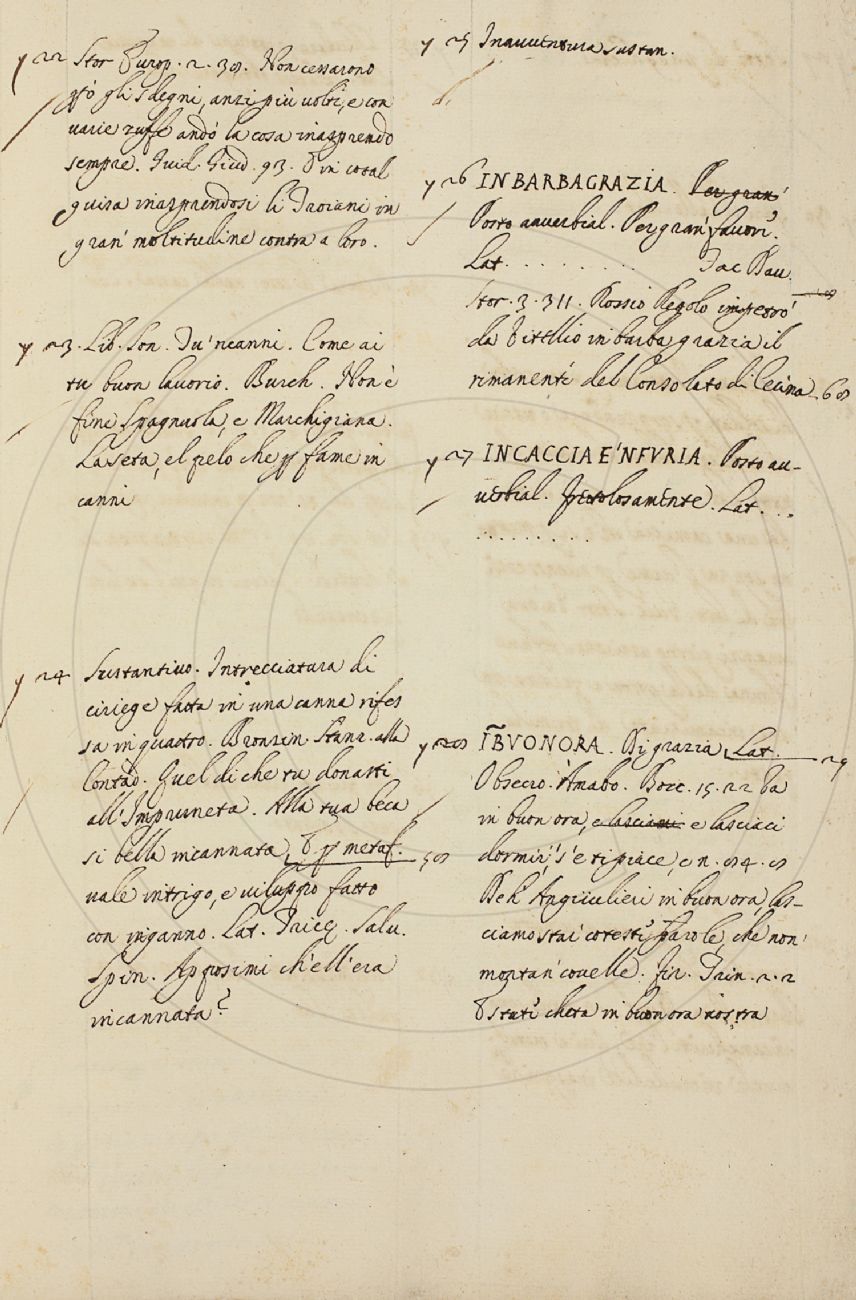 y 22 Stor Europ. 2. 38. Non cessarono
p̱ò gli sdegni, anzi più volte, e con
varie zuffe andò la cosa inasprendo
sempre. Guid. Giud. 93. E in cotal
guisa inasprendosi li Troiani in
gran moltitudine contra a loro.
y 23. Lib. Son. Tu 'ncanni. Come ai
tu buon lavorio. Burch. Non è
fine Spagnuola, e Marchigiana.
La seta, el pelo che p̱ fame in
canni
y 24 Sustantivo. Intrecciatura di
ciriege fatta in una canna rifes
sa in quattro. Bronzin. Stanz. alla
Contad. Quel di che tu donasti
all'Impruneta. Alla tua beca
si bella incannata, E p̱ metaf. 58
vale intrigo, e viluppo fatto
con inganno. Lat. Tricę. Salv.
Spin. Apposimi ch'ell'era
incannata?
y 25 Inavventura sustan.
y 26 INBARBAGRAZIA. Per gran
Posto avverbial. Per gran favore.
Lat. . . . . . . . . Tac Dav.
Stor. 3. 311. Rossio Regolo impetrò
da Vitellio in barba grazia il
rimanente del Consolato di Cecina 68
y 27 INCACCIA E'NFVRIA. Posto av-
verbial. frettolosamente. Lat. . .
. . . . . . . . .
y 28 ĪBVONORA. Di grazia, Lat. 29
Obsecro. Amabo. Bocc. 15. 22 Va
in buon ora, e lasciami e lasciaci
dormir, s'e ti piace, e n. 84. 8
Deh Angiulieri in buon ora, las-
ciamo stare coteste parole, che non
montan covelle. Fir. Trin. 2. 2
E state cheta in buon ora nostra